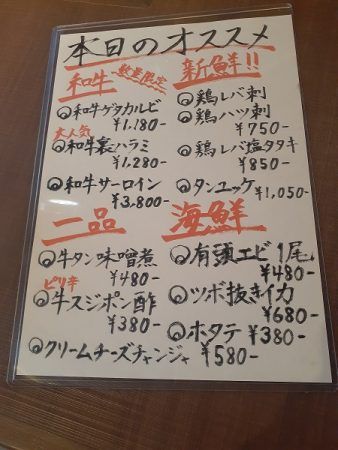 本日のオススメ
和牛 数量限定
◎和牛ゲタカルビ
¥1,180-
大人気
◎和牛裏ハラミ
¥1,280-
◎和牛サーロイン
¥3,800-
新鮮!!
◎鶏レバ刺
◎鶏ハツ刺
¥750-
◎鶏レバ塩タタキ
¥850-
◎タンユッケ¥1,050-
一品
◎牛タン味噌煮
¥480-
ピリ辛
◎牛スジポン酢
¥380-
◎クリームチーズチャンジャ
¥580-
海鮮
◎有頭エビ 1尾
¥480-
◎ツボ抜きイカ
¥680-
◎ホタテ ¥380-